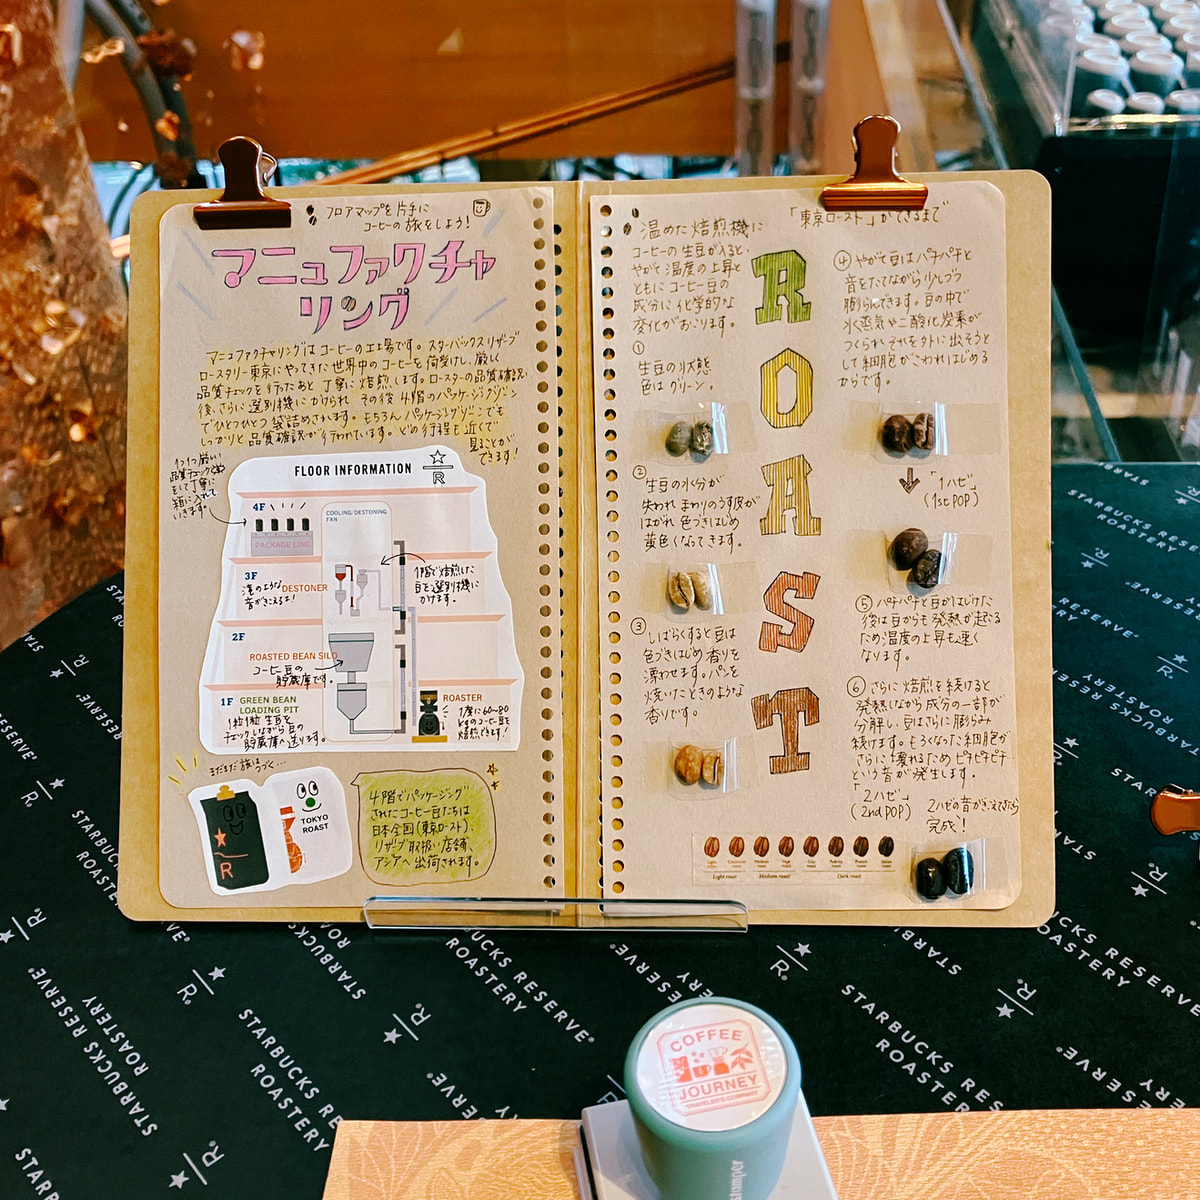 フロアマップを片手に
コーヒーの旅をしよう!
マニュファクチャ
リング
マニュファクチャリングはコーヒーの工場です。スターバックスリザーブ
ロースタリー東京にやってきた世界中のコーヒーを荷受けし、厳しく
品質チェックを行ったあと丁寧に焙煎します。ロースターの品質確認
後、さらに選別機にかけられ その後4階のパッケージングゾーン
でひとつひとつ袋詰めされます。もちろんパッケージングゾーンでも
しっかりと品質確認が行われています。どの行程も近くで
見ることが
できます!
1つ1つ厳しい
品質チェックを
箱に入れて
いきます。
FLOOR INFORMATION
R
4F
PACKAGE LINE
COOLING/DESTONING
FAN
3F
DESTONER
滝のような
音がきこえるよ!
1階で焙煎した
豆を選別機に
かけます。
2F
ROASTED BEAN SILO
コーヒー豆の
貯蔵庫です。
1F GREEN BEAN
LOADING PIT
1粒1粒 生豆を
チェックしながら豆の
貯蔵庫へ送ります。
ROASTER
1度に60~80
焙煎できます!
まだまだ旅はつづく…
R
TOKYO
ROAST
4階でパッケージング
されたコーヒー豆たちは
日本全国(東京ロースト)、
リザーブ取扱い店舗、
アジアへ出荷されます。
「東京ロースト」ができるまで
温めた焙煎機に
コーヒーの生豆が入ると、
やがて温度の上昇と
ともにコーヒー豆の
成分に化学的な
変化がおこります。
ROAST
①
生豆の状態
色はグリーン。
②
生豆の水分が
失われ まわりのうす皮が
はがれ 色づきはじめ
黄色くなってきます。
③
しばらくすると豆は
色づきはじめ香りを
漂わせます。パンを
焼いたときのような
香りです。
④ やがて豆はパチパチと
音をたてながら少しづつ
膨らんできます。豆の中で
水蒸気や二酸化炭素が
つくられ それを外に出そうと
して細胞がこわれはじめる
からです。
「1ハゼ」
(1st POP)
⑤ パチパチと豆がはじけた
後は豆からも発熱が起こる
ため温度の上昇も速く
なります。
⑥ さらに焙煎を続けると
発熱しながら成分の一部が
分解し、豆はさらに膨らみ
続けます。もろくなった細胞が
さらに壊れるためピチピチ
という音が発生します。
「2ハゼ」
(2nd POP)
2ハゼの音がきこえてきたら
完成!
Light roast Medium roast Dark roast
STARBUCKS RESERVE®
ROASTERY
STARBUCKS RESERVE®
ROASTERY
STARBUCKS RESERVE®
ROASTERY
STARBUCKS RESERVE®
ROASTERY
COFFEE
JOURNEY
TRAVELER'S COMPANY
stamper